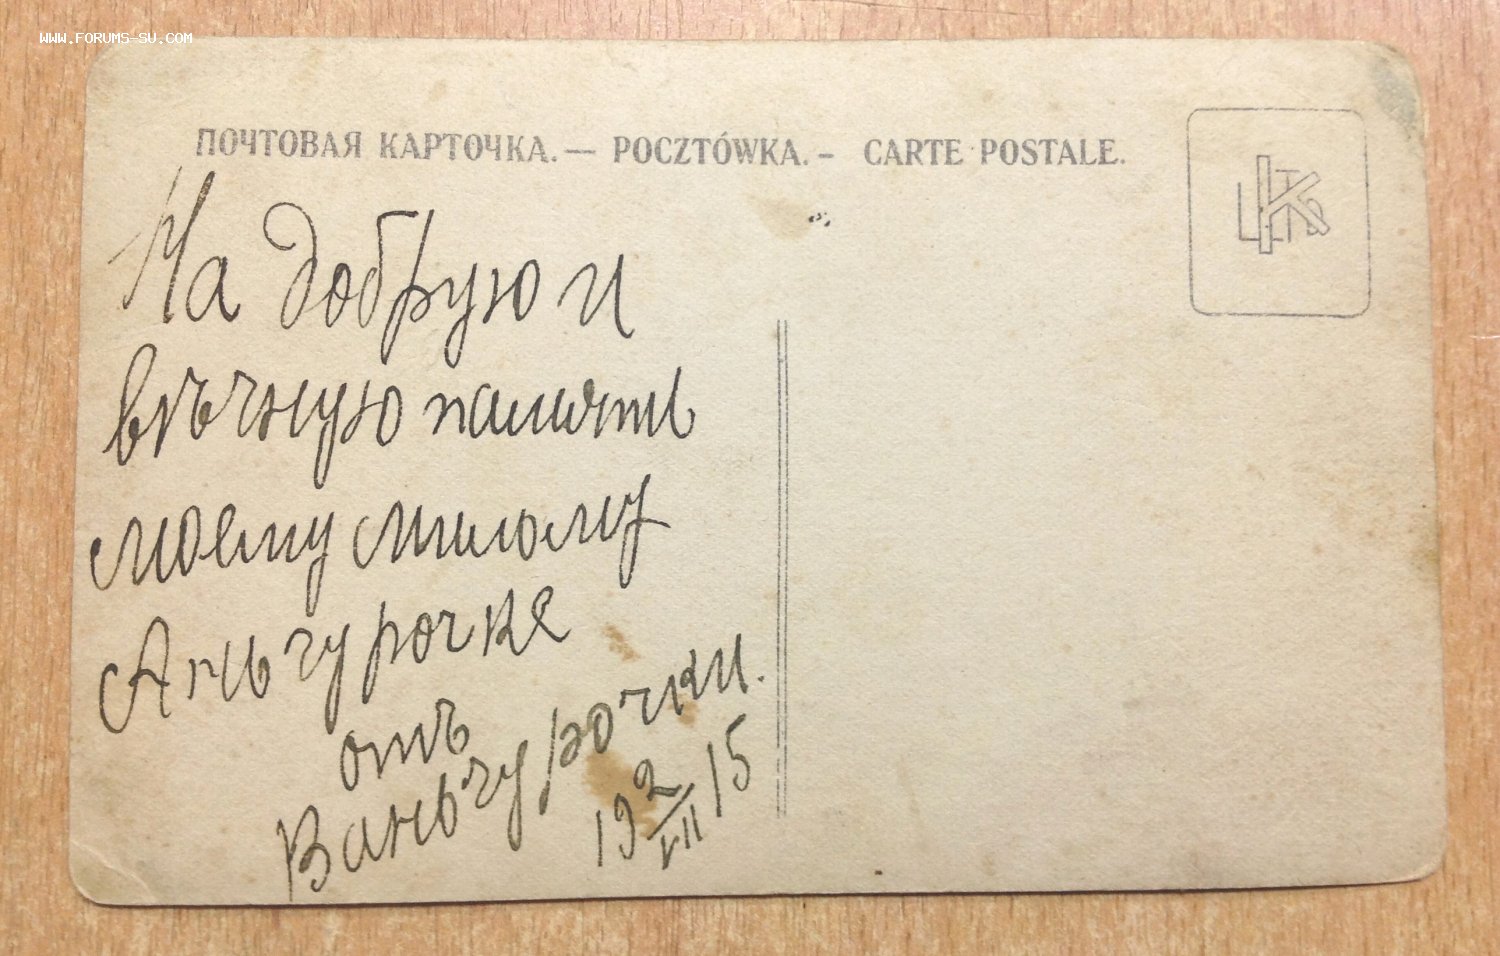 WWW.FORUMS-SU.COM
ПОЧТОВАЯ КАРТОЧКА. — POCZTÓWKA. - CARTE POSTALE.
На добрую и
вѣчную память
моему милому
Аньчурочке
отъ
Ваньчурочки.
19 2/VII 15